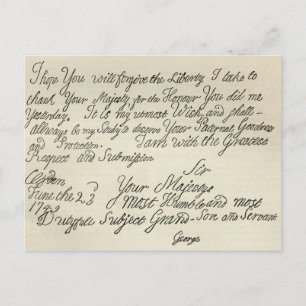 I hope You will forgive the Liberty I take to
thank Your Majesty for the Honour You did me
Yesterday. It is my utmost Wish, and shall
always be my Study to deserve Your Paternal Goodness
and Protection. I am with the Greatest
Respect and Submission
Sir
Your Majestys
Most Humble and most
Dutyfull Subject Grand-Son and Servant
George
June the 23d
1749